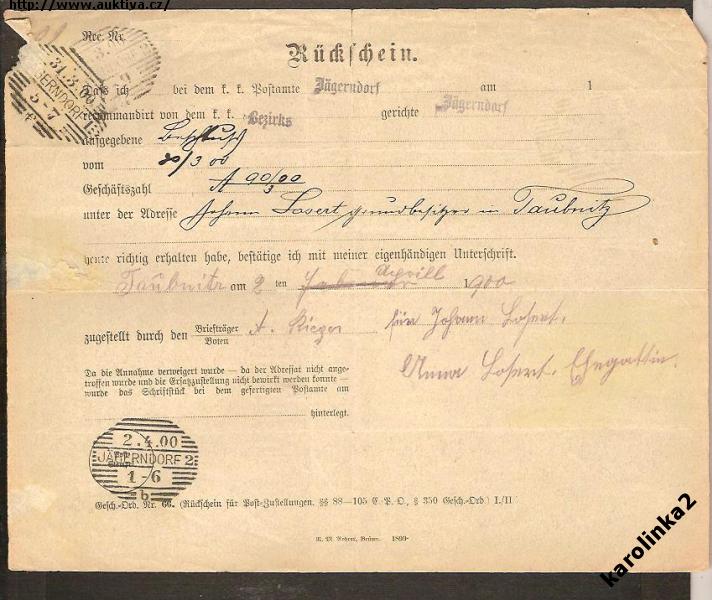 http://www.auktiva.cz/
Rec. Nr.
Rückschein.
31.3.00
JÄGERNDORF 1
5-7
Dass ich bei dem k. k. Postamte Jägerndorf am 1
recommandirt von dem k. k. Bezirks gerichte Jägerndorf
aufgegebene Beschluß
vom 20/3 00
Geschäftszahl A 90/00 3
unter der Adresse Johann Losert, grundbesitzer in Taubnitz
heute richtig erhalten habe, bestätige ich mit meiner eigenhändigen Unterschrift.
Taubnitz am 2 ten Aprill 1900
zugestellt durch den Briefträger Boten A. Rieger für Johann Losert.
Anna Losert. Ehegattin.
Da die Annahme verweigert wurde — da der Adressat nicht ange-
troffen wurde und die Ersatzzustellung nicht bewirkt werden konnte —
wurde das Schriftstück bei dem gefertigten Postamte am
hinterlegt.
2.4.00
JÄGERNDORF 2
1-6
b
Gesch.-Ord. Nr. 66. (Rückschein für Post-Zustellungen. §§ 88—105 C. P. O., § 350 Gesch.-Ord.) I./II.
R. M. Rohrer, Brünn. 1899·
karolinka2